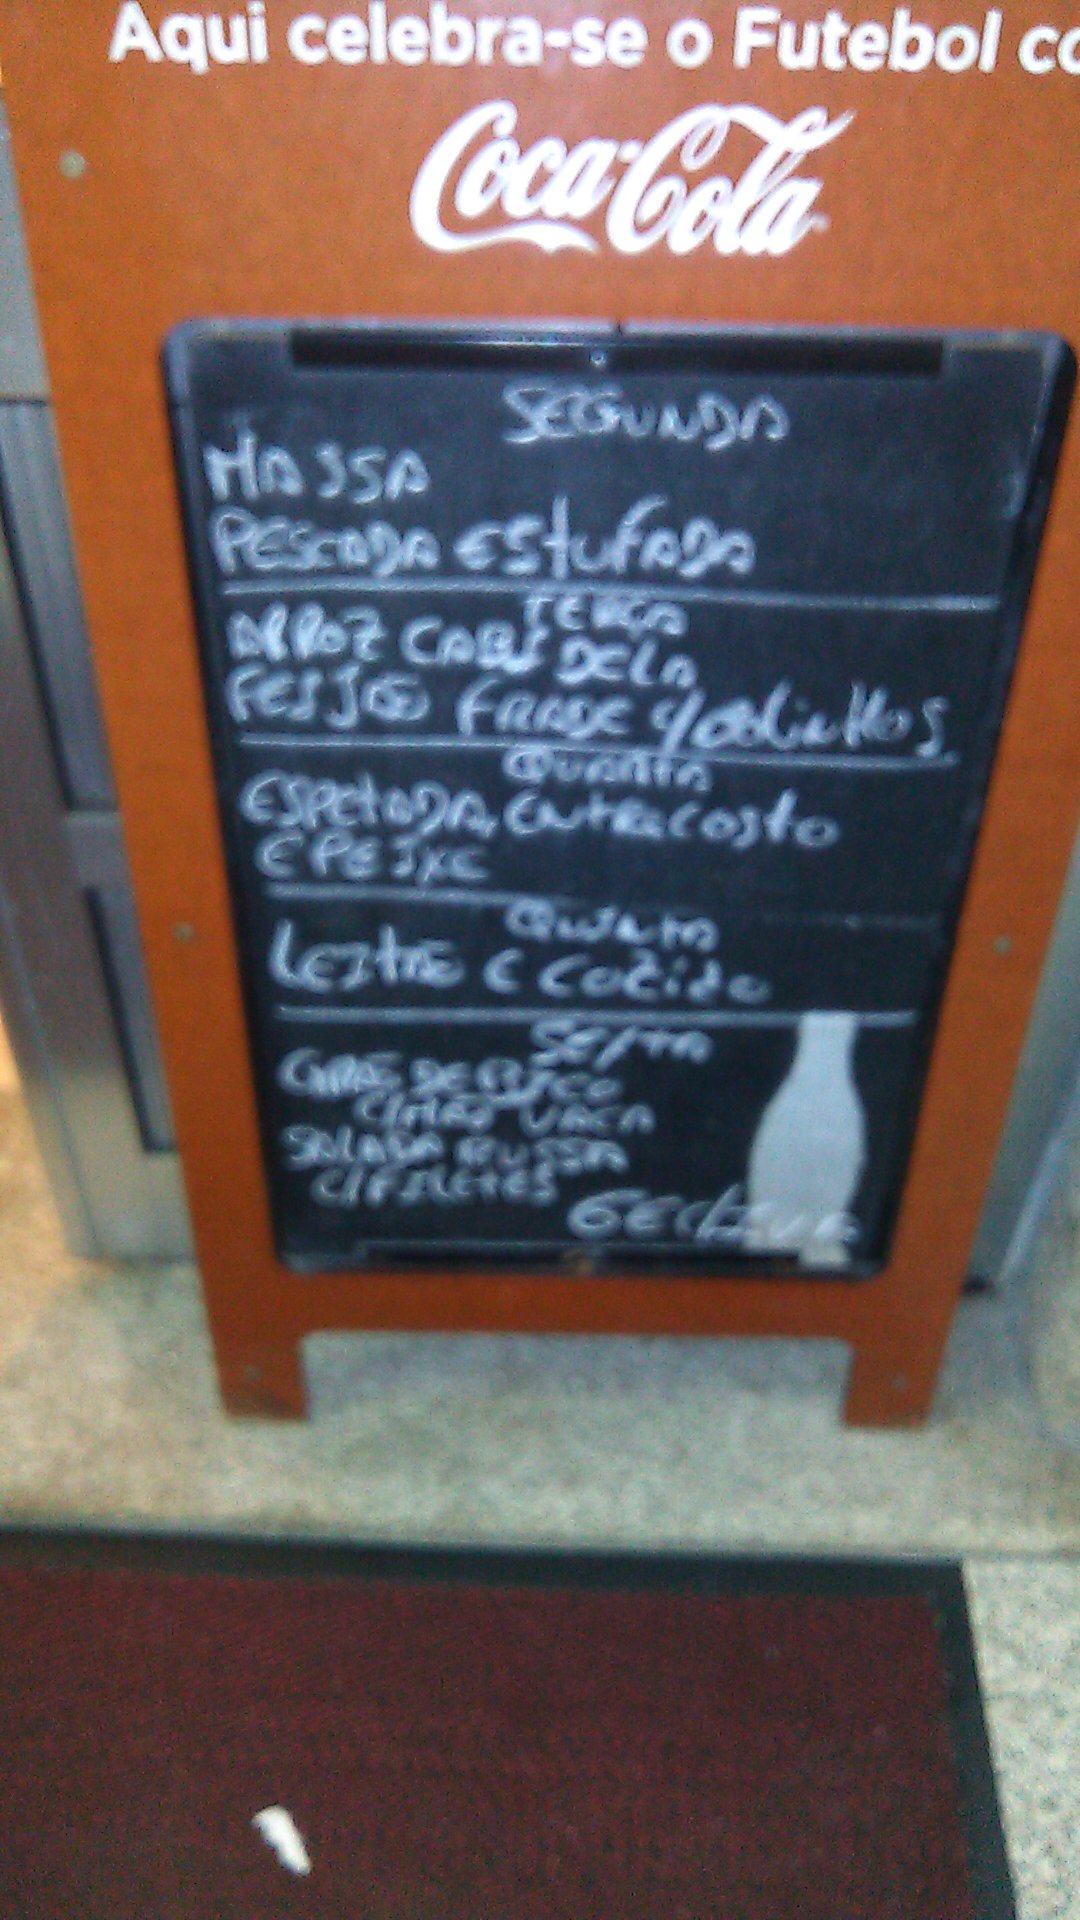 Aqui celebra-se o Futebol co
Coca-Cola
SEGUNDA
MASSA
PESCADA EStUFADA
TERÇA
ARROZ CABIDELA
FEIJÃO FRADE c/
QUARTA
ESPETADA, ENtRECOSto
E PEIXE
QUINTA
LEItÃO E COZiDo
SEXTA
GRÃO DE BICO
C/MÃO VACA
SALADA RUSSA
C/FILETES